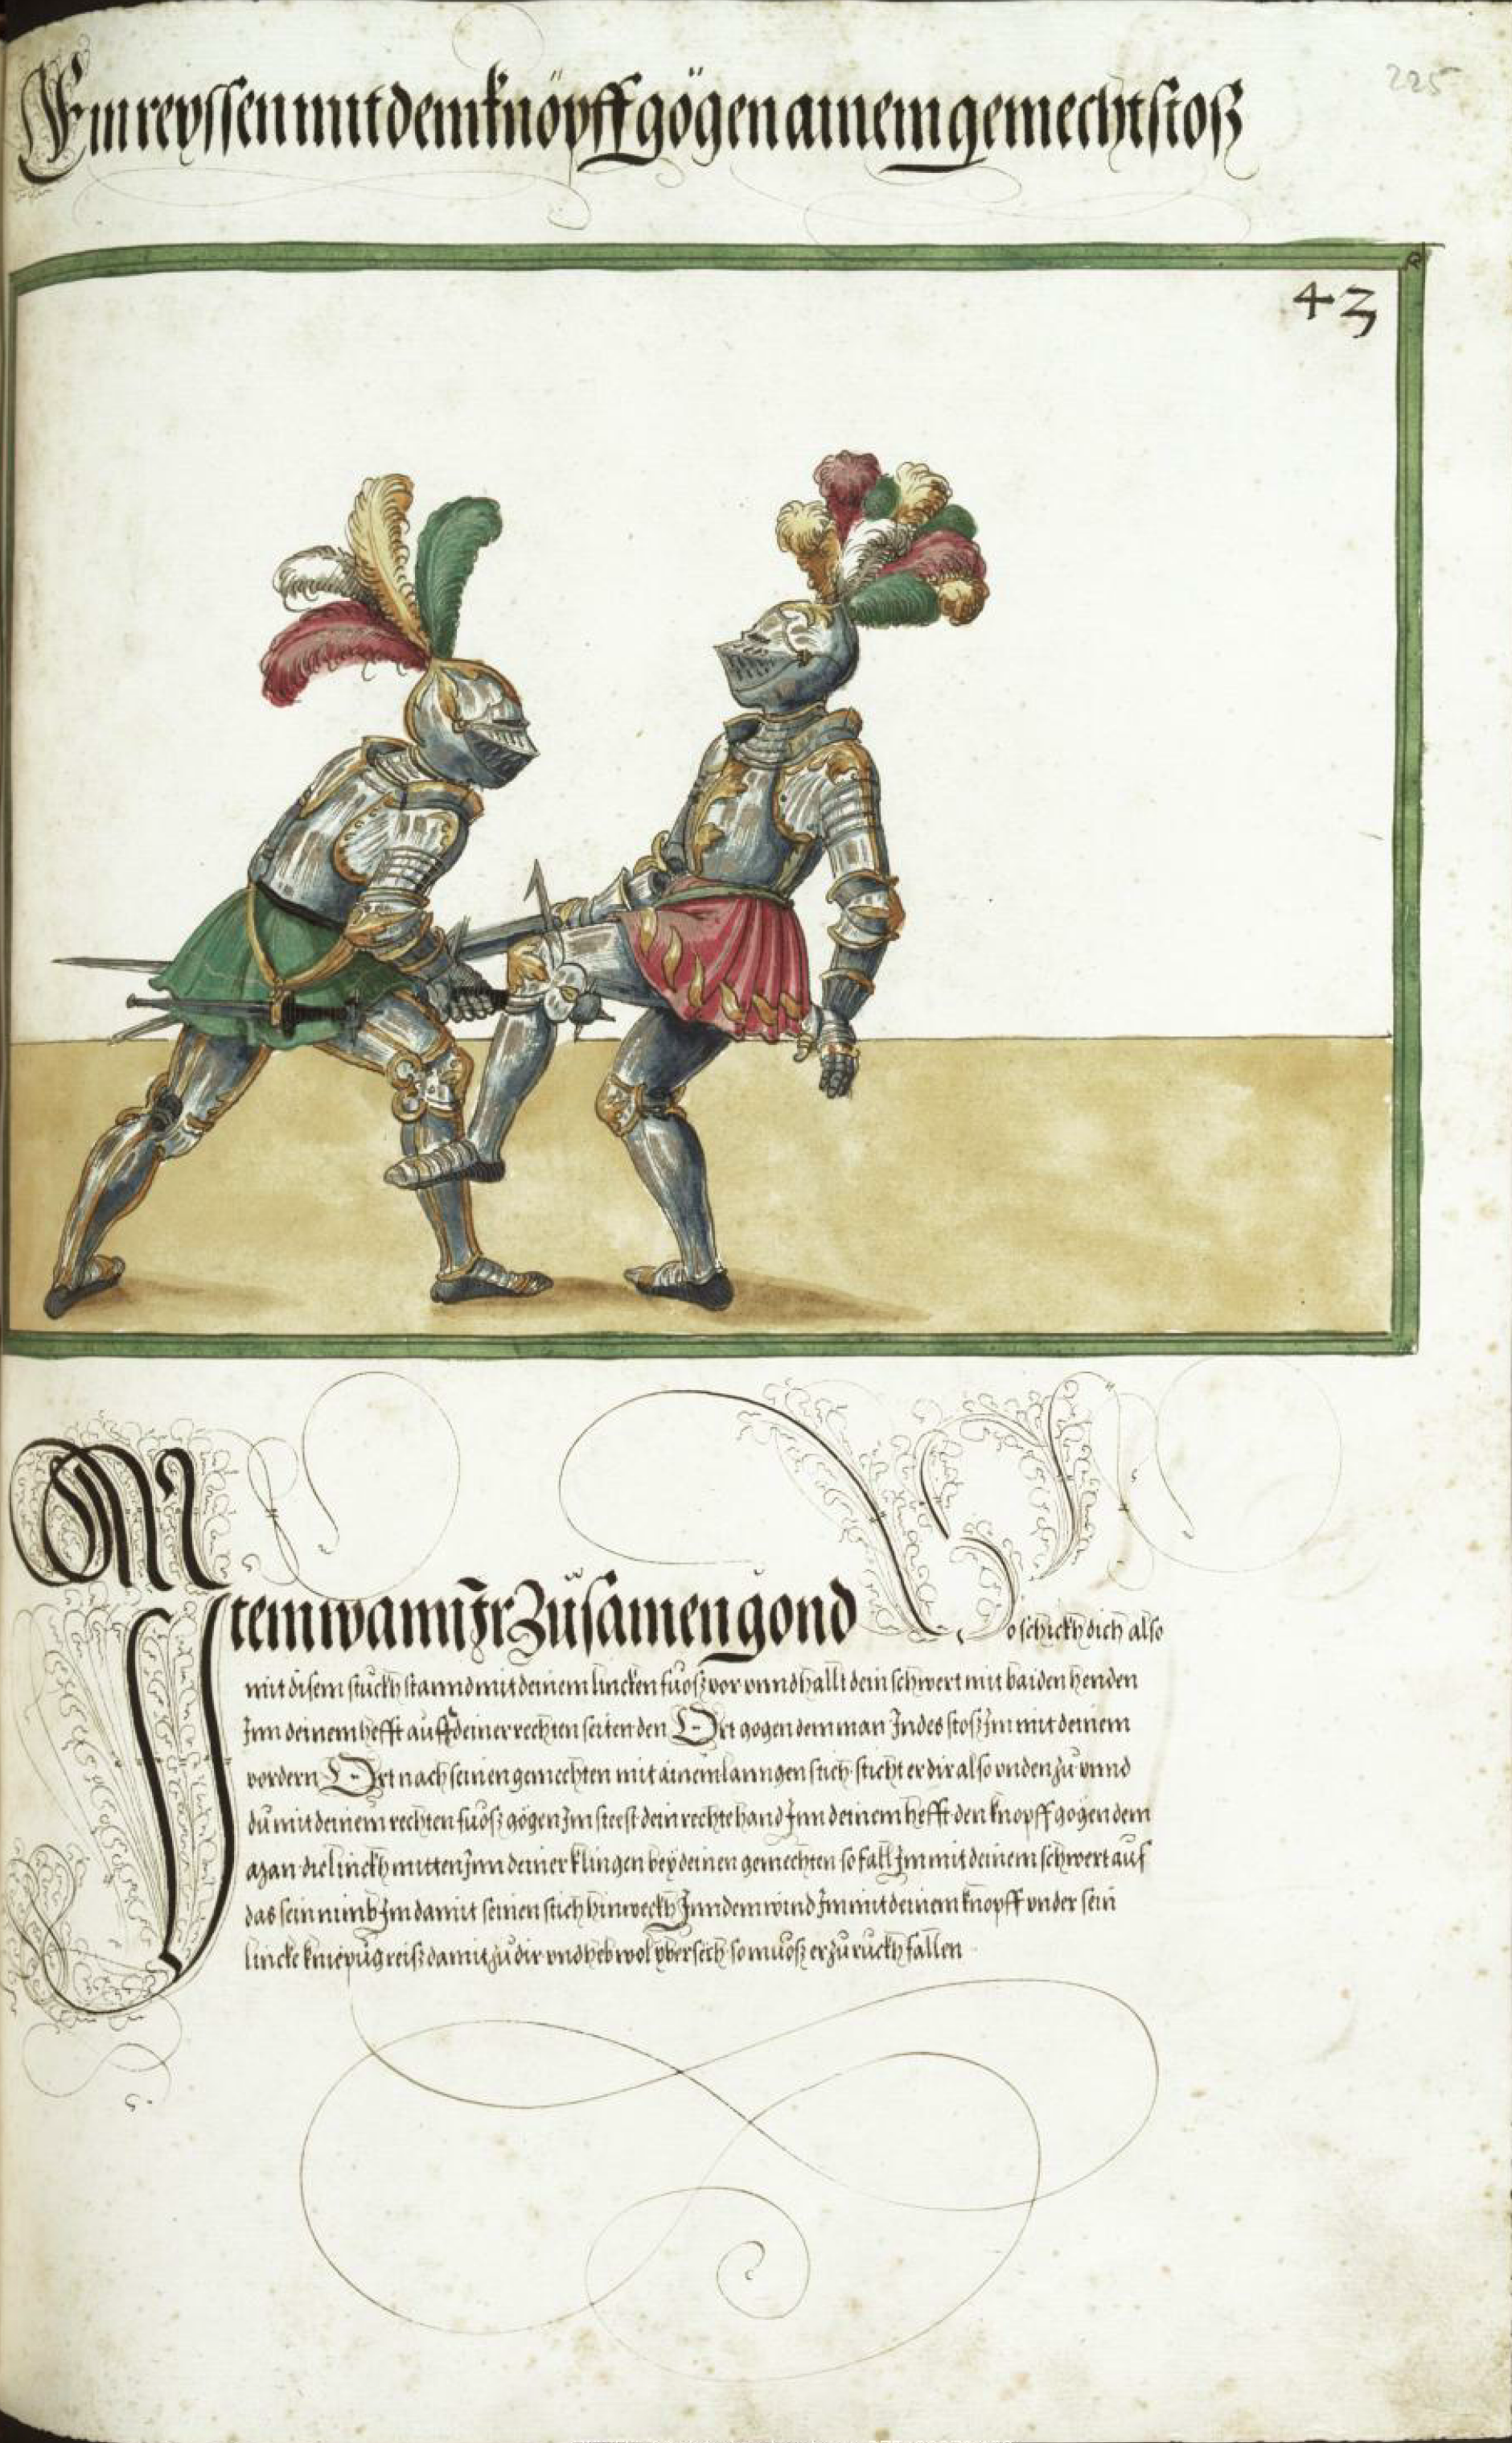 225
Ein reyssen mit dem knöpff gögen ainem gemecht stoß
43
Item wann Ir Züsamen gond So schickh dich also
mit disem stuckh stannd mit deinem lincken fuoß vor vnnd hallt dein schwert mit baiden henden
Inn deinem hefft auff deiner rechten seiten den Ort gogen dem man Indes stoß Im mit deinem
vordern Ort nach seinen gemechten mit ainem lanngen stich sticht er dir also vnden zu vnnd
du mit deinem rechten fuoß gögen Im steest dein rechte hand Inn deinem hefft den knopff gogen dem
man die linckh mitten Inn deiner klingen bey deinen gemechten so fall Im mit deinem schwert auf
das sein nimb Im damit seinen stich hinweckh Inn dem wind Im mit deinem knopff vnder sein
lincke kniepüg reiß damit zu dir vnd heb wol ybersich so muoß er zu ruckh fallen